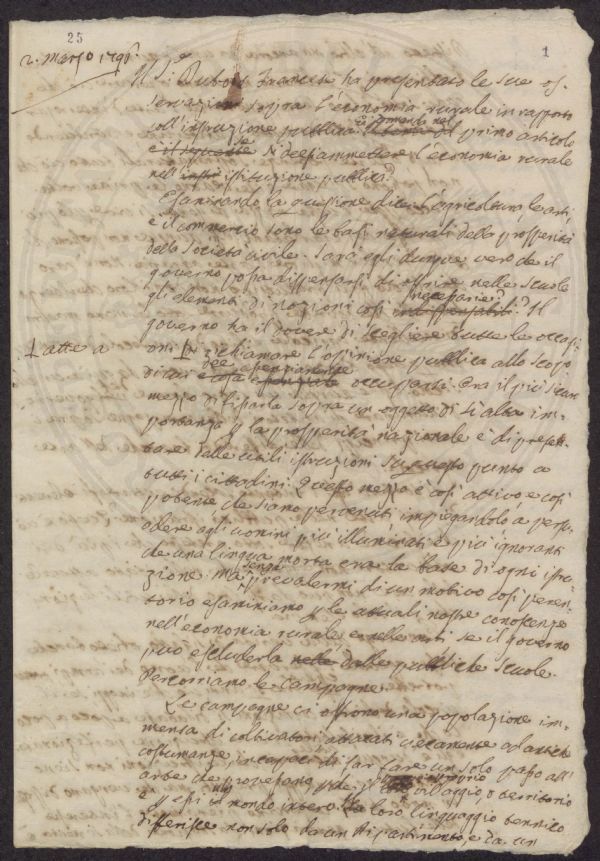 25
1
2. Marzo 1796.
Il Sr. Dubois Francese ha presentato le sue os-
servazioni sopra l'economia rurale in rapporto
coll'istruzione pubblica. Esaminando nel primo articolo
e il seguente se si dee ammettere l'economia rurale
nell' istituzione pubblica?
Esaminando la quistione dice: l'agricoltura, le arti,
e il commercio sono le basi naturali della prosperità
della Società civile. Sarà egli dunque vero che il
governo possa dispensarsi di offrire nelle scuole
gli elementi di nozioni così necessarie? Il
indispensabili
governo ha il dovere di scegliere tutte le occasi-
oni atte a richiamare l'opinione pubblica allo scopo
di cui dee essere occupata. Ora il più sicuro
mezzo di fissarla sopra un oggetto di sì alta im-
portanza per la prosperità nazionale è di presen-
tare delle utili istruzioni su questo punto a
tutti i cittadini. Questo mezzo è così attivo, e così
potente che siamo pervenuti impiegandolo a persu-
adere agli uomini più illuminati e più ignoranti
che una lingua morta era la base di ogni istru-
zione. Ma senza prevalermi di un motivo così peren-
torio esaminiamo per le attuali nostre conoscenze
nell'economia rurale e nelle arti se il governo
può escluderla nelle dalle pubbliche scuole
Percorriamo le campagne.
Le campagne ci offrono una popolazione im-
mensa di coltivatori attaccati ciecamente ad antiche
costumanze, incapaci di far fare un solo passo all'
arte che professano, villaggio o territorio
è per essi un mondo intero. Il loro linguaggio tecnico
differisce non solo da un dipartimento, e da un